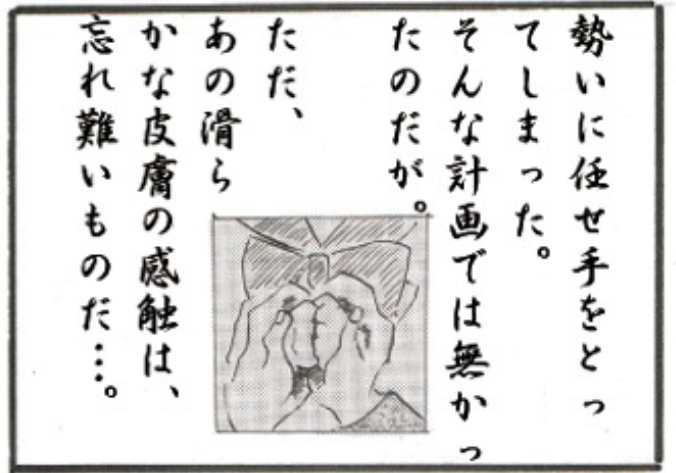 勢いに任せ手をとっ
てしまった。
そんな計画では無かっ
たのだが。
ただ、
あの滑ら
かな皮膚の感触は、
忘れ難いものだ…。